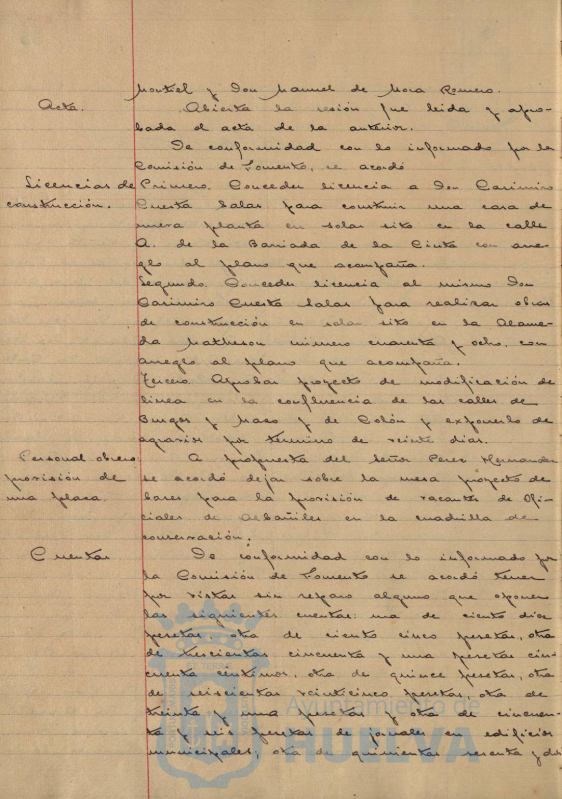 Montiel y Don Manuel de Mora Romero.
Acta. Abierta la sesión fue leida y apro-
bada el acta de la anterior.
De conformidad con lo informado por la
Comisión de Fomento, se acordó
Licencias de construcción. Primero. Conceder licencia a Don Casimiro
Cuesta Salas para construir una casa de
nueva planta en solar sito en la calle
A. de la Barriada de la Cinta con arre-
glo al plano que acompaña.
Segundo. Conceder licencia al mismo Don
Casimiro Cuesta Salas para realizar obras
de construcción en solar sito en la Alame-
da Matheson número cuarenta y ocho, con
arreglo al plano que acompaña.
Tercero. Aprobar proyecto de modificación de
linea en la confluencia de las calles de
Burgos y Maso y de Colón y exponerlo de
agravios por término de veinte dias.
Personal obrero provisión de una plaza. A propuesta del Señor Perez Hernandez
se acordó dejar sobre la mesa proyecto de
bases para la provisión de vacantes de Ofi-
ciales de Albañiles en la cuadrilla de
conservación.
Cuentas De conformidad con lo informado por
la Comisión de Fomento se acordó tener
por vistas sin reparo alguno que oponer
las siguientes cuentas: una de ciento diez
pesetas, otra de ciento cinco pesetas, otra
de trescientas cincuenta y una pesetas cin-
cuenta centimos, otra de quince pesetas, otra
de seiscientas veinticinco pesetas, otra de
treinta y una pesetas y otra de cincuen-
ta y seis pesetas de jornales en edificios
municipales; otra de quinientas sesenta y dos
Ayuntamiento de
HUELVA